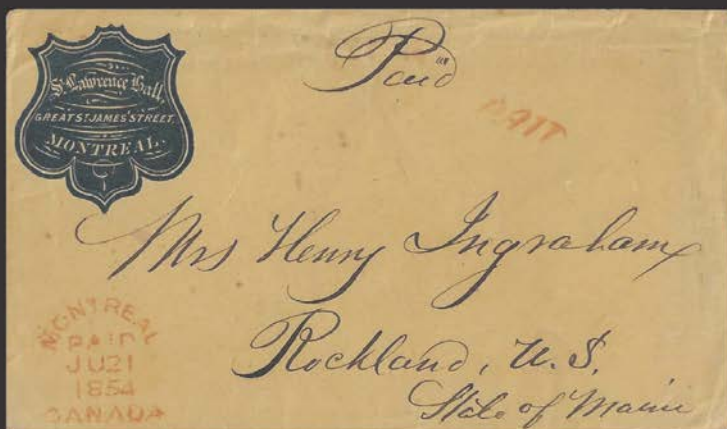 St. Lawrence Hall,
GREAT ST JAMES' STREET,
MONTREAL.
Paid
PAID
Mrs Henry Ingraham
Rockland, U.S.
State of Maine
MONTREAL
PAID
JU21
1854
CANADA